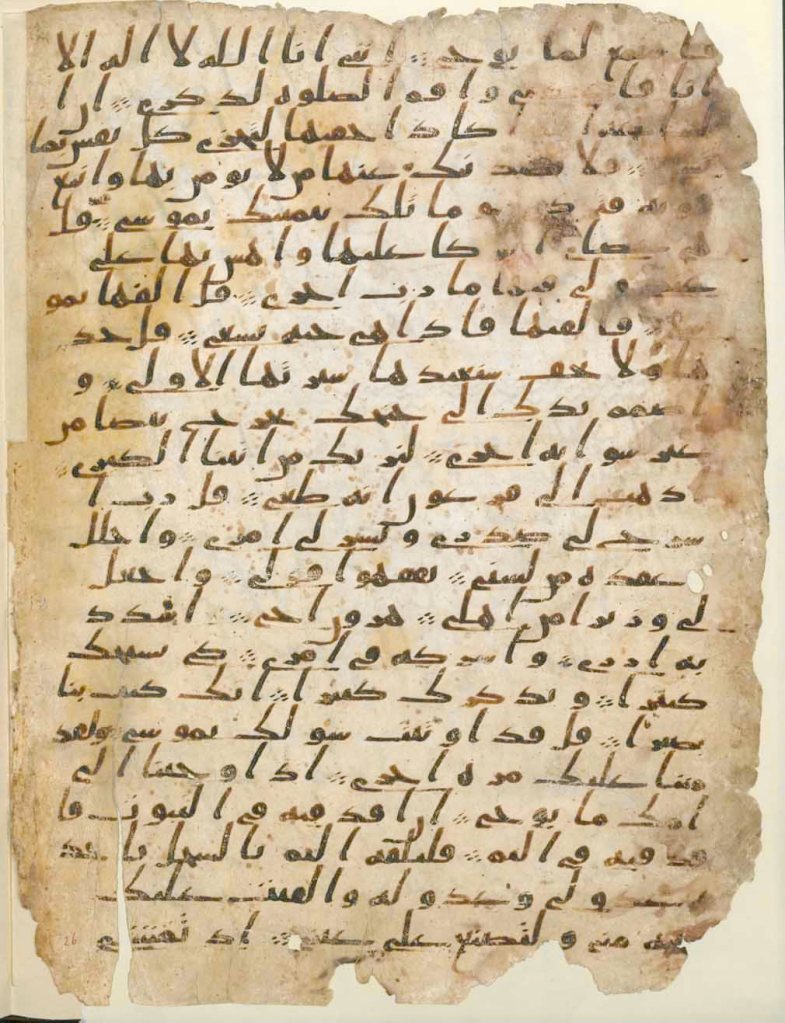 فاستمع لما يوحى انني انا الله لا اله الا
انا فاعبدني واقم الصلوه لذكري ان ا
كاد اخفيها لتجزى كل نفس بما
فلا يصدنك عنها من لا يومن بها واتبع
هويه فتردى وما تلك بيمينك يموسى قل
هي عصاي اتوكا عليها واهش بها على
غنمي ولي فيها مارب اخرى قل القها يمو
سى فالقيها فاذا هي حيه تسعى قل خذ
ها ولا تخف سنعيدها سيرتها الاولى و
اضمم يدك الى جنحك تخرج بيضا من
غير سوا ايه اخرى لنريك من ايتنا الكبرى
اذهب الى فرعون انه طغى قل رب ا
شرح لي صدري ويسر لي امري واحلل
عقده من لسني يفقهوا قولي واجعل
لي وزيرا من اهلي هرون اخي اشدد
به ازري واشركه في امري كي نسبحك
كثيرا ونذكرك كثيرا انك كنت بنا
بصيرا قل قد اوتيت سولك يموسى ولقد
مننا عليك مره اخرى اذ اوحينا الى
امك ما يوحى ان اقذفيه في التبوت فا
قذفيه في اليم فليلقه اليم بالسحل ياخذ
عدو لي وعدو له والقيت عليك
محبه مني ولتصنع على عيني اذ تمشي
26